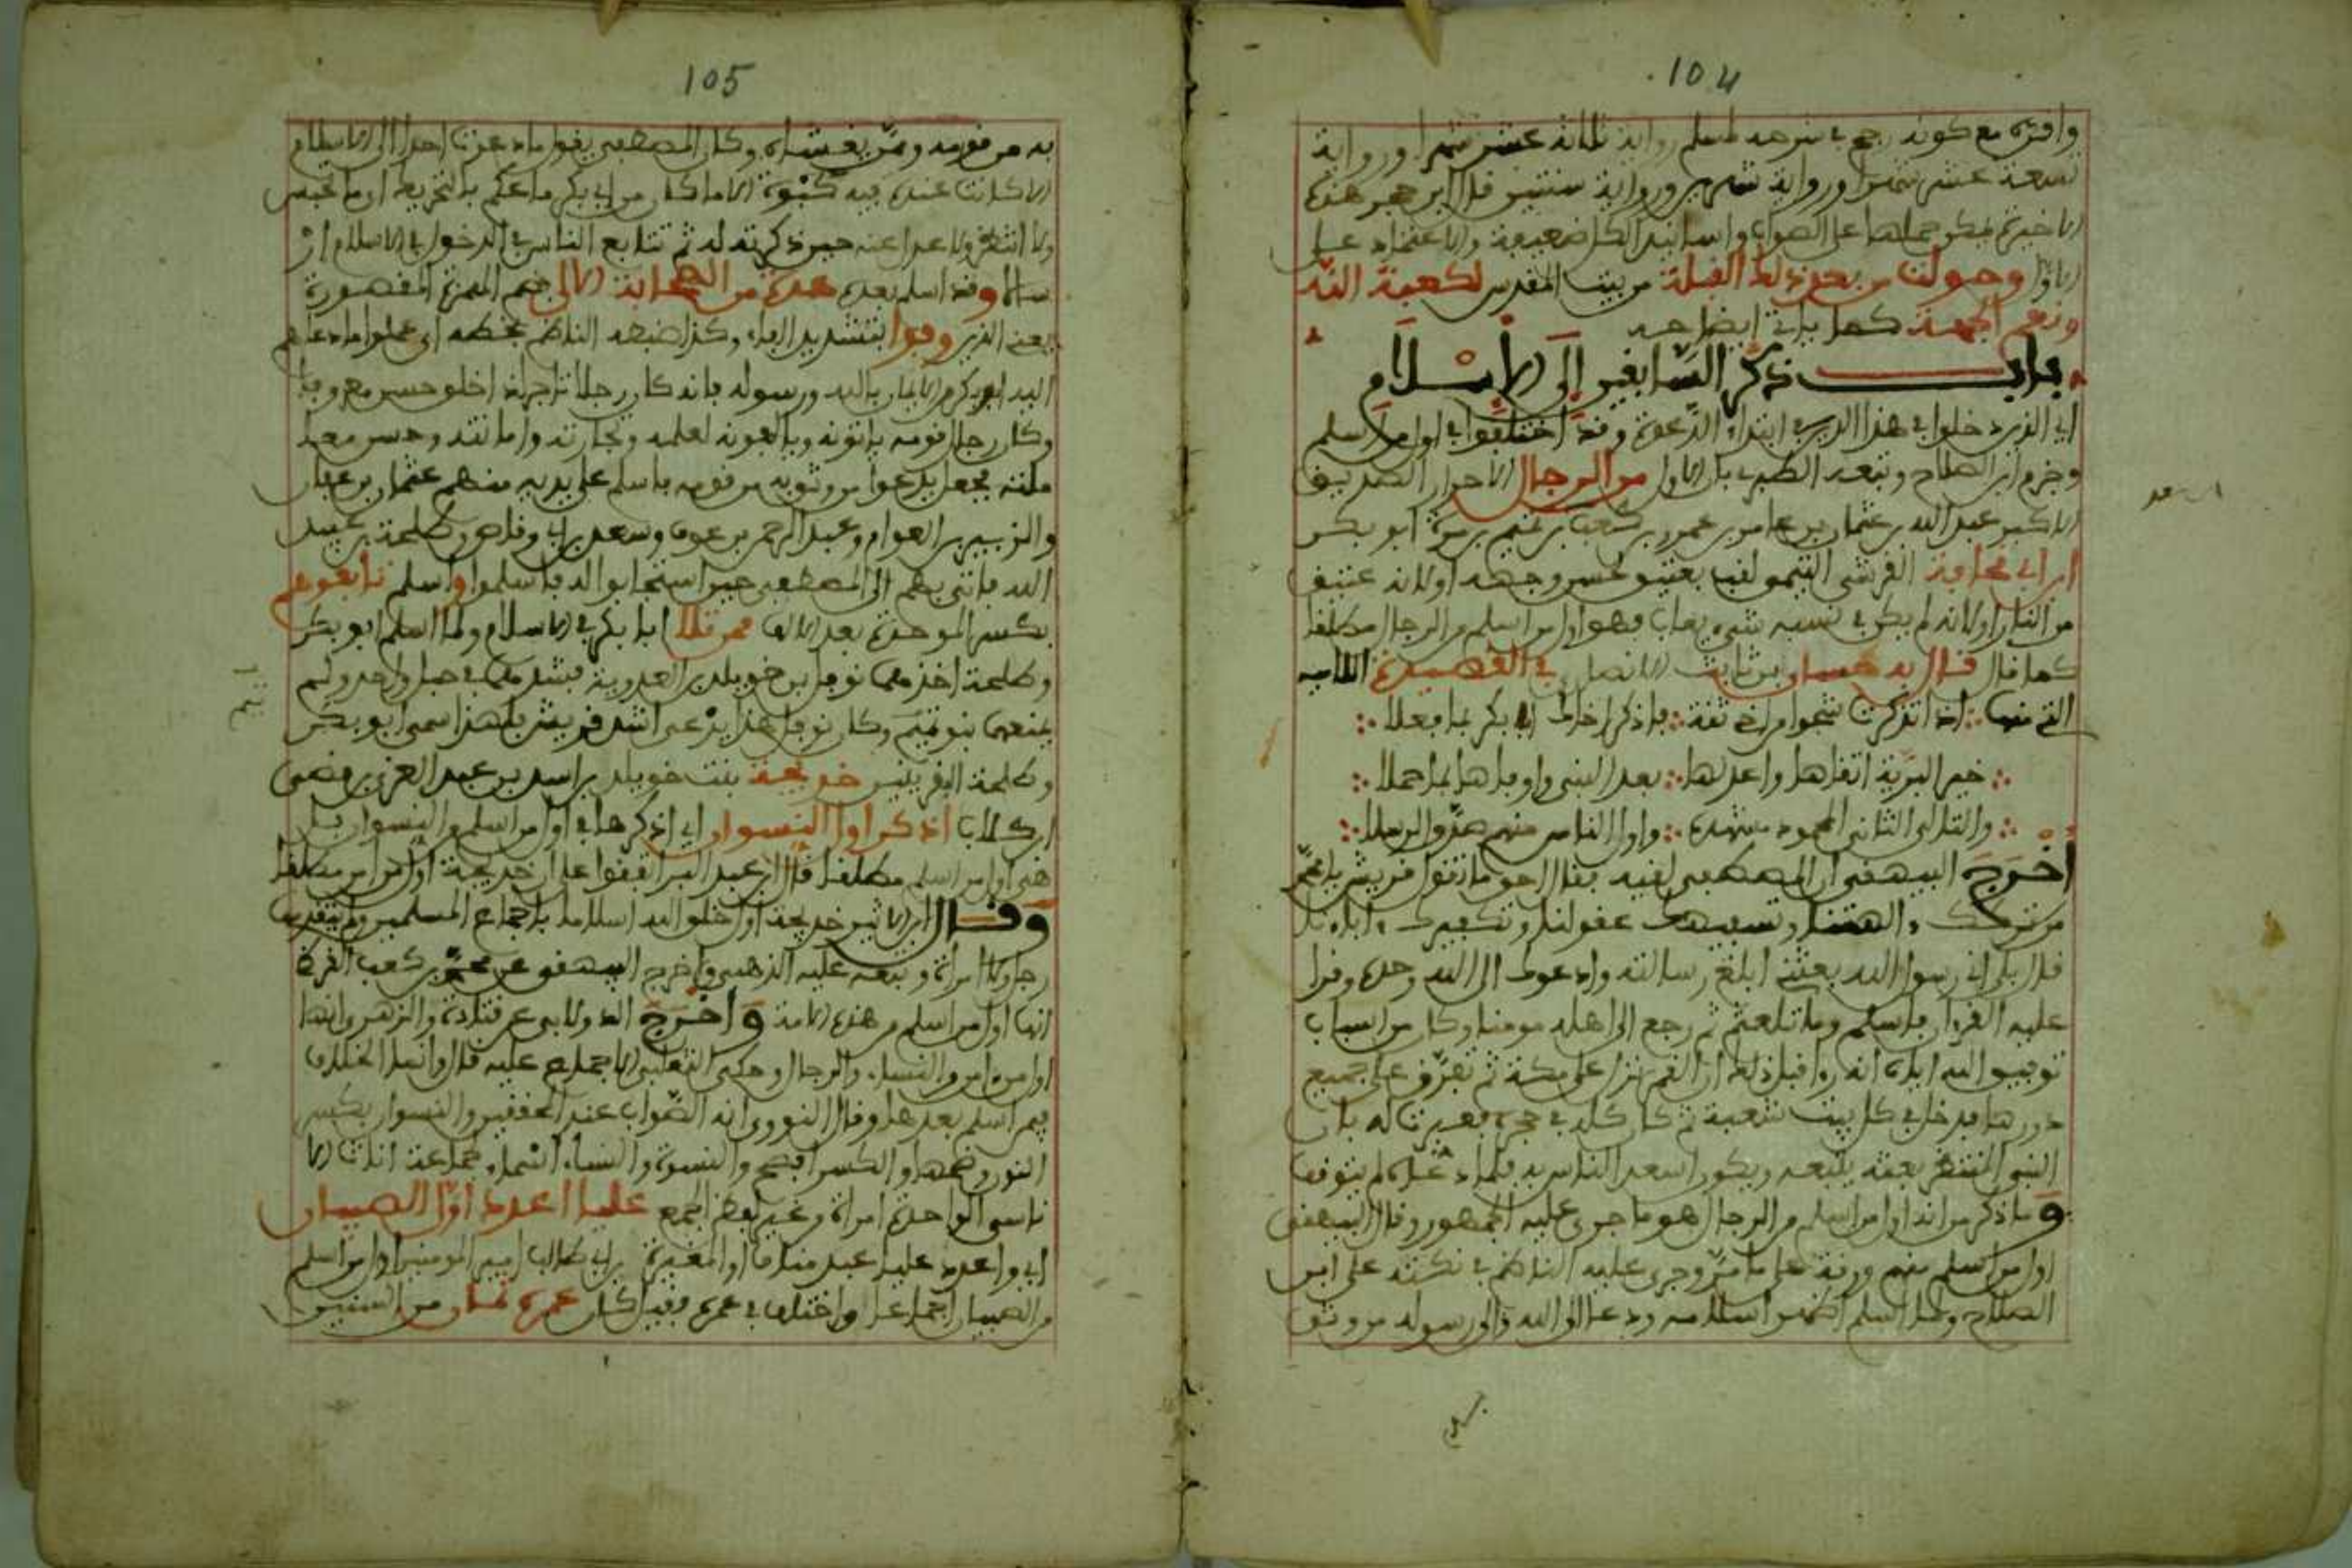 104
واقره مع كونه رجح في شرحه لمسلم رواية ثلاثة عشر شهرا ورواية
تسعة عشر شهرا ورواية شهرين ورواية سنتين قال ابن حجر هذه
الاخيرة يمكن حملها على الصواب واسانيد الكل ضعيفة والاعتماد على
الاول وحولت من بعد ذلك القبلة من بيت المقدس لكعبة الله
ونعم الجهة كما ياتي ايضاحه
باب ذكر السابقين إلى الإسلام
اي الذين دخلوا في هذا الدين في ابتداء الدعوة وقد اختلفوا في اول من اسلم
وجزم ابن الصلاح وتبعه الطيبي بان الاول من الرجال الاحرار الصديق
الاكبر عبد الله بن عثمان بن عامر بن عمرو بن كعب بن تيم بن مرة ابو بكر
ابن ابي قحافة القرشي التيمي لقب بعتيق لحسن وجهه او لانه عتيق
من النار او لانه لم يكن في نسبه شيء يعاب فهو اول من اسلم من الرجال مطلقا
كما قال قال به حسان بن ثابت الانصاري في القصيدة اللامية
التي منها اذا تذكرت شجوا من اخي ثقة فاذكر اخاك ابا بكر بما فعلا
خير البرية اتقاها واعدلها بعد النبي واوفاها بما حملا
والتالي الثاني المحمود مشهده واول الناس منهم صدق الرسلا
أخرج البيهقي ان المصطفى لقيه فقال احق ما تقول قريش يا محمد
من تركك الهتنا وتسفيهك عقولنا وتكفيرك اباءنا
قال بلى اني رسول الله بعثني ابلغ رسالته وادعوك الى الله وحده وقرا
عليه القران فاسلم وما تلعثم ثم رجع الى اهله مومنا وكان من اسباب
توفيق الله اياه انه راى قبل ذلك ان القمر نزل على مكة ثم تفرق على جميع
دورها فدخل في كل بيت شعبة ثم كان كله في حجره فعبرت له بان
النبي المنتظر بعثه يتبعه ويكون اسعد الناس به فلما دعاه لم يتوقف
وما ذكر من انه اول من اسلم من الرجال هو ما جرى عليه الجمهور وقال البيهقي
اول من اسلم منهم ورقة على ما مر وجرى عليه الناظم في نكته على ابن
الصلاح ولما اسلم اظهر اسلامه ودعا الى الله والى رسوله من وثق
105
به من قومه وممن يغشاه وكان المصطفى يقول ما دعوت احدا الى الاسلام
الا كانت عنده فيه كبوة الا ما كان من ابي بكر ما عكم بالتحريك اي ما تحبس
ولا انتظر ولا عدا عنه حين ذكرته له ثم تتابع الناس في الدخول في الاسلام ار
سالا وقد اسلم بعده عدة من الصحابة الالى بضم الهمزة المقصورة
يعني الذين وفوا بتشديد الفاء وكذا ضبطه الناظم بخطه اي عملوا ما دعاهم
اليه ابو بكر من الايمان بالله ورسوله فانه كان رجلا تاجرا ذا خلق حسن معروفا
وكان رجال قومه ياتونه ويالفونه لعلمه وتجارته وامانته وحسن معا
ملته فجعل يدعوا من وثق به من قومه فاسلم على يديه منهم عثمان بن عفان
والزبير بن العوام وعبد الرحمن بن عوف وسعد بن ابي وقاص وطلحة بن عبيد
الله فاتى بهم الى المصطفى حين استجابوا له فاسلموا واسلم تابعوهم
بكسر الموحدة بعد الالف ممن تلا ابا بكر في الاسلام ولما اسلم ابو بكر
وطلحة اخذهما نوفل بن خويلد بن العدوية فشدهما في حبل واحد ولم
يمنعهما بنو تيم وكان نوفل هذا يدعى اشد قريش فلهذا سمي ابو بكر
وطلحة القرينين خديجة بنت خويلد بن اسد بن عبد العزى بن قصي
ابن كلاب اذكر اول النسوان اي اذكرها في اول من اسلم من النسوان بل
هي اول من اسلم مطلقا قال ابن عبد البر اتفقوا على ان خديجة اول من امن مطلقا
وقال ابن الاثير خديجة اول خلق الله اسلاما باجماع المسلمين ولم يتقدمها
رجل ولا امراة وتبعه عليه الذهبي واخرج البيهقي عن محمد بن كعب القرظي
انها اول من اسلم من هذه الامة وأخرج الدولابي عن قتادة والزهري انها
اول من امن من النساء والرجال وحكى الثعلبي الاجماع عليه قال وانما الخلاف
فيمن اسلم بعدها وقال النووي انه الصواب عند المحققين والنسوان بكسر
النون وضمها والكسر افصح والنسوة والنساء اسماء جماعة اناث الا
ناسي الواحدة امراة من غير لفظ الجمع عليا اعدد اول الصبيان
اي واعدد عليا عبد مناف او المغيرة بن ابي طالب امير المومنين اول من اسلم
من الصبيان اجماعا واختلف في عمره فقيل كان عمره ثمان من السنين